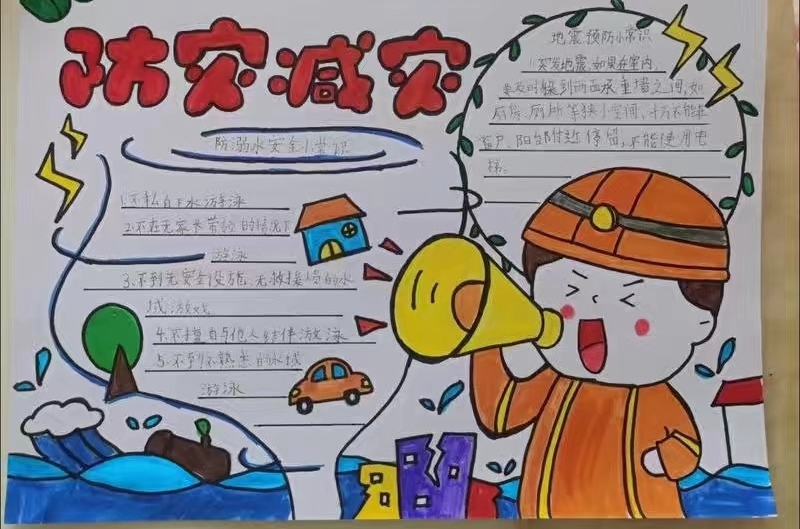 防灾减灾
防溺水安全小常识
1.不私自下水游泳
2.不在无家长带领的情况下
游泳
3.不到无安全设施、无救援员的水
域游戏
4.不擅自与他人结伴游泳
5.不到不熟悉的水域
游泳
地震预防小常识
突发地震,如果在室内,
要及时躲到两面承重墙之间,如
厨房、厕所等狭小空间,千万不能
窗户、阳台附近停留,不能使用电
梯。